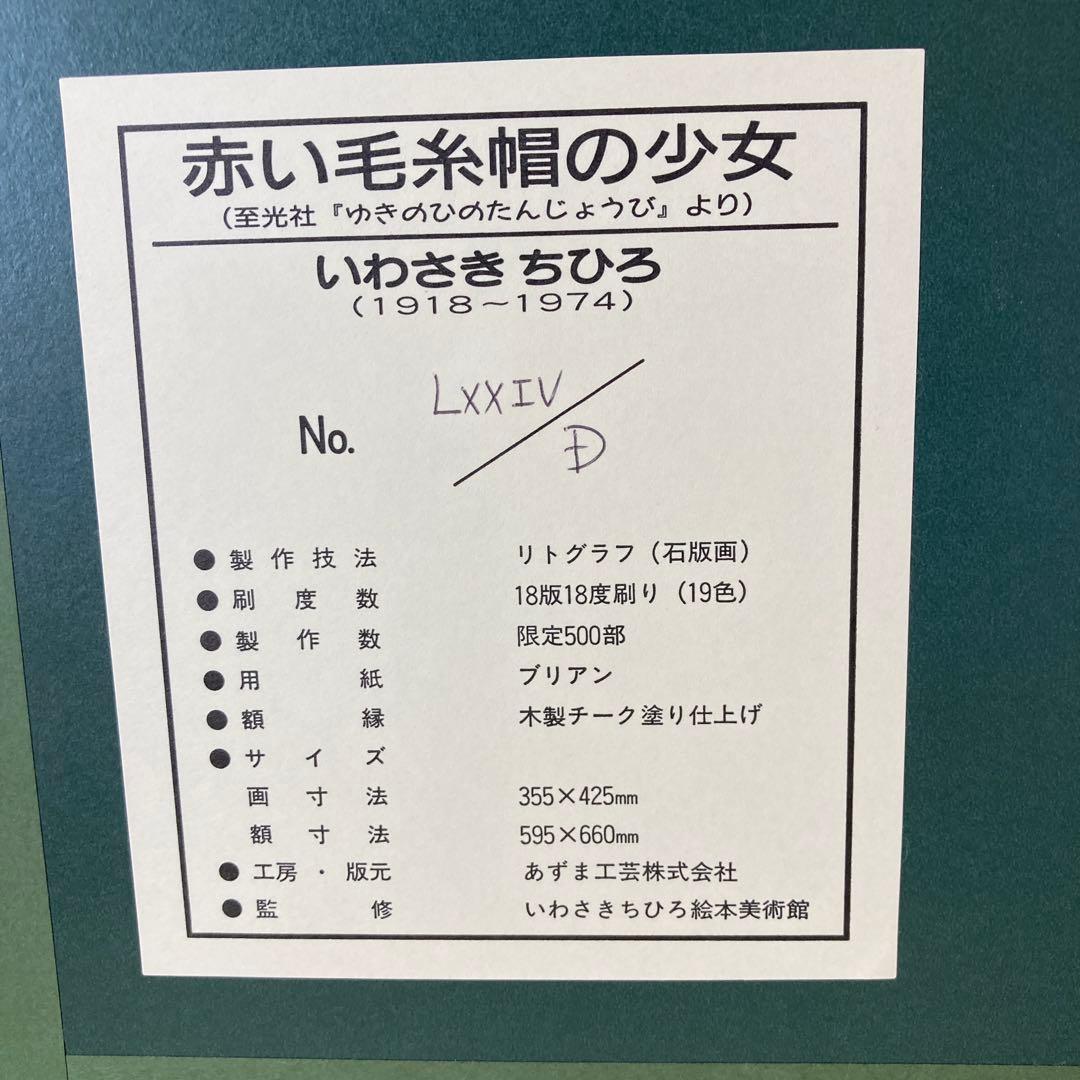 赤い毛糸帽の少女
(至光社『ゆきのひのたんじょうび』より)
いわさき ちひろ
(1918～1974)
No. LXXIV/D
●製作技法 リトグラフ(石版画)
●刷度数 18版18度刷り(19色)
●製作数 限定500部
●用紙 ブリアン
●額縁 木製チーク塗り仕上げ
●サイズ
画寸法 355×425㎜
額寸法 595×660㎜
●工房・版元 あずま工芸株式会社
●監修 いわさきちひろ絵本美術館